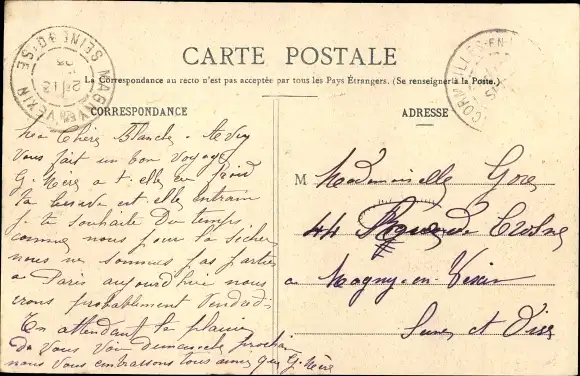 CARTE POSTALE
La Correspondance au recto n'est pas acceptée par tous les Pays Étrangers. (Se renseigner à la Poste.)
CORRESPONDANCE
ADRESSE
MAGNY-EN-VEXIN
SEINE-&-OISE
Ma Chère Blanche
Vous fait un bon voyage
G. Mère a t-elle eu froid
la lessive est elle en train
je te souhaite du temps
comme nous pour la sécher
nous ne sommes pas parties
a Paris aujourd'hui nous
irons probablement Vendredi
En attendant le plaisir
de vous voir Dimanche prochain
nous vous embrassons tous ainsi que G. Mère
M Mademoiselle
44 Rue de Crosne
a Magny-en-Vexin
Seine et Oise